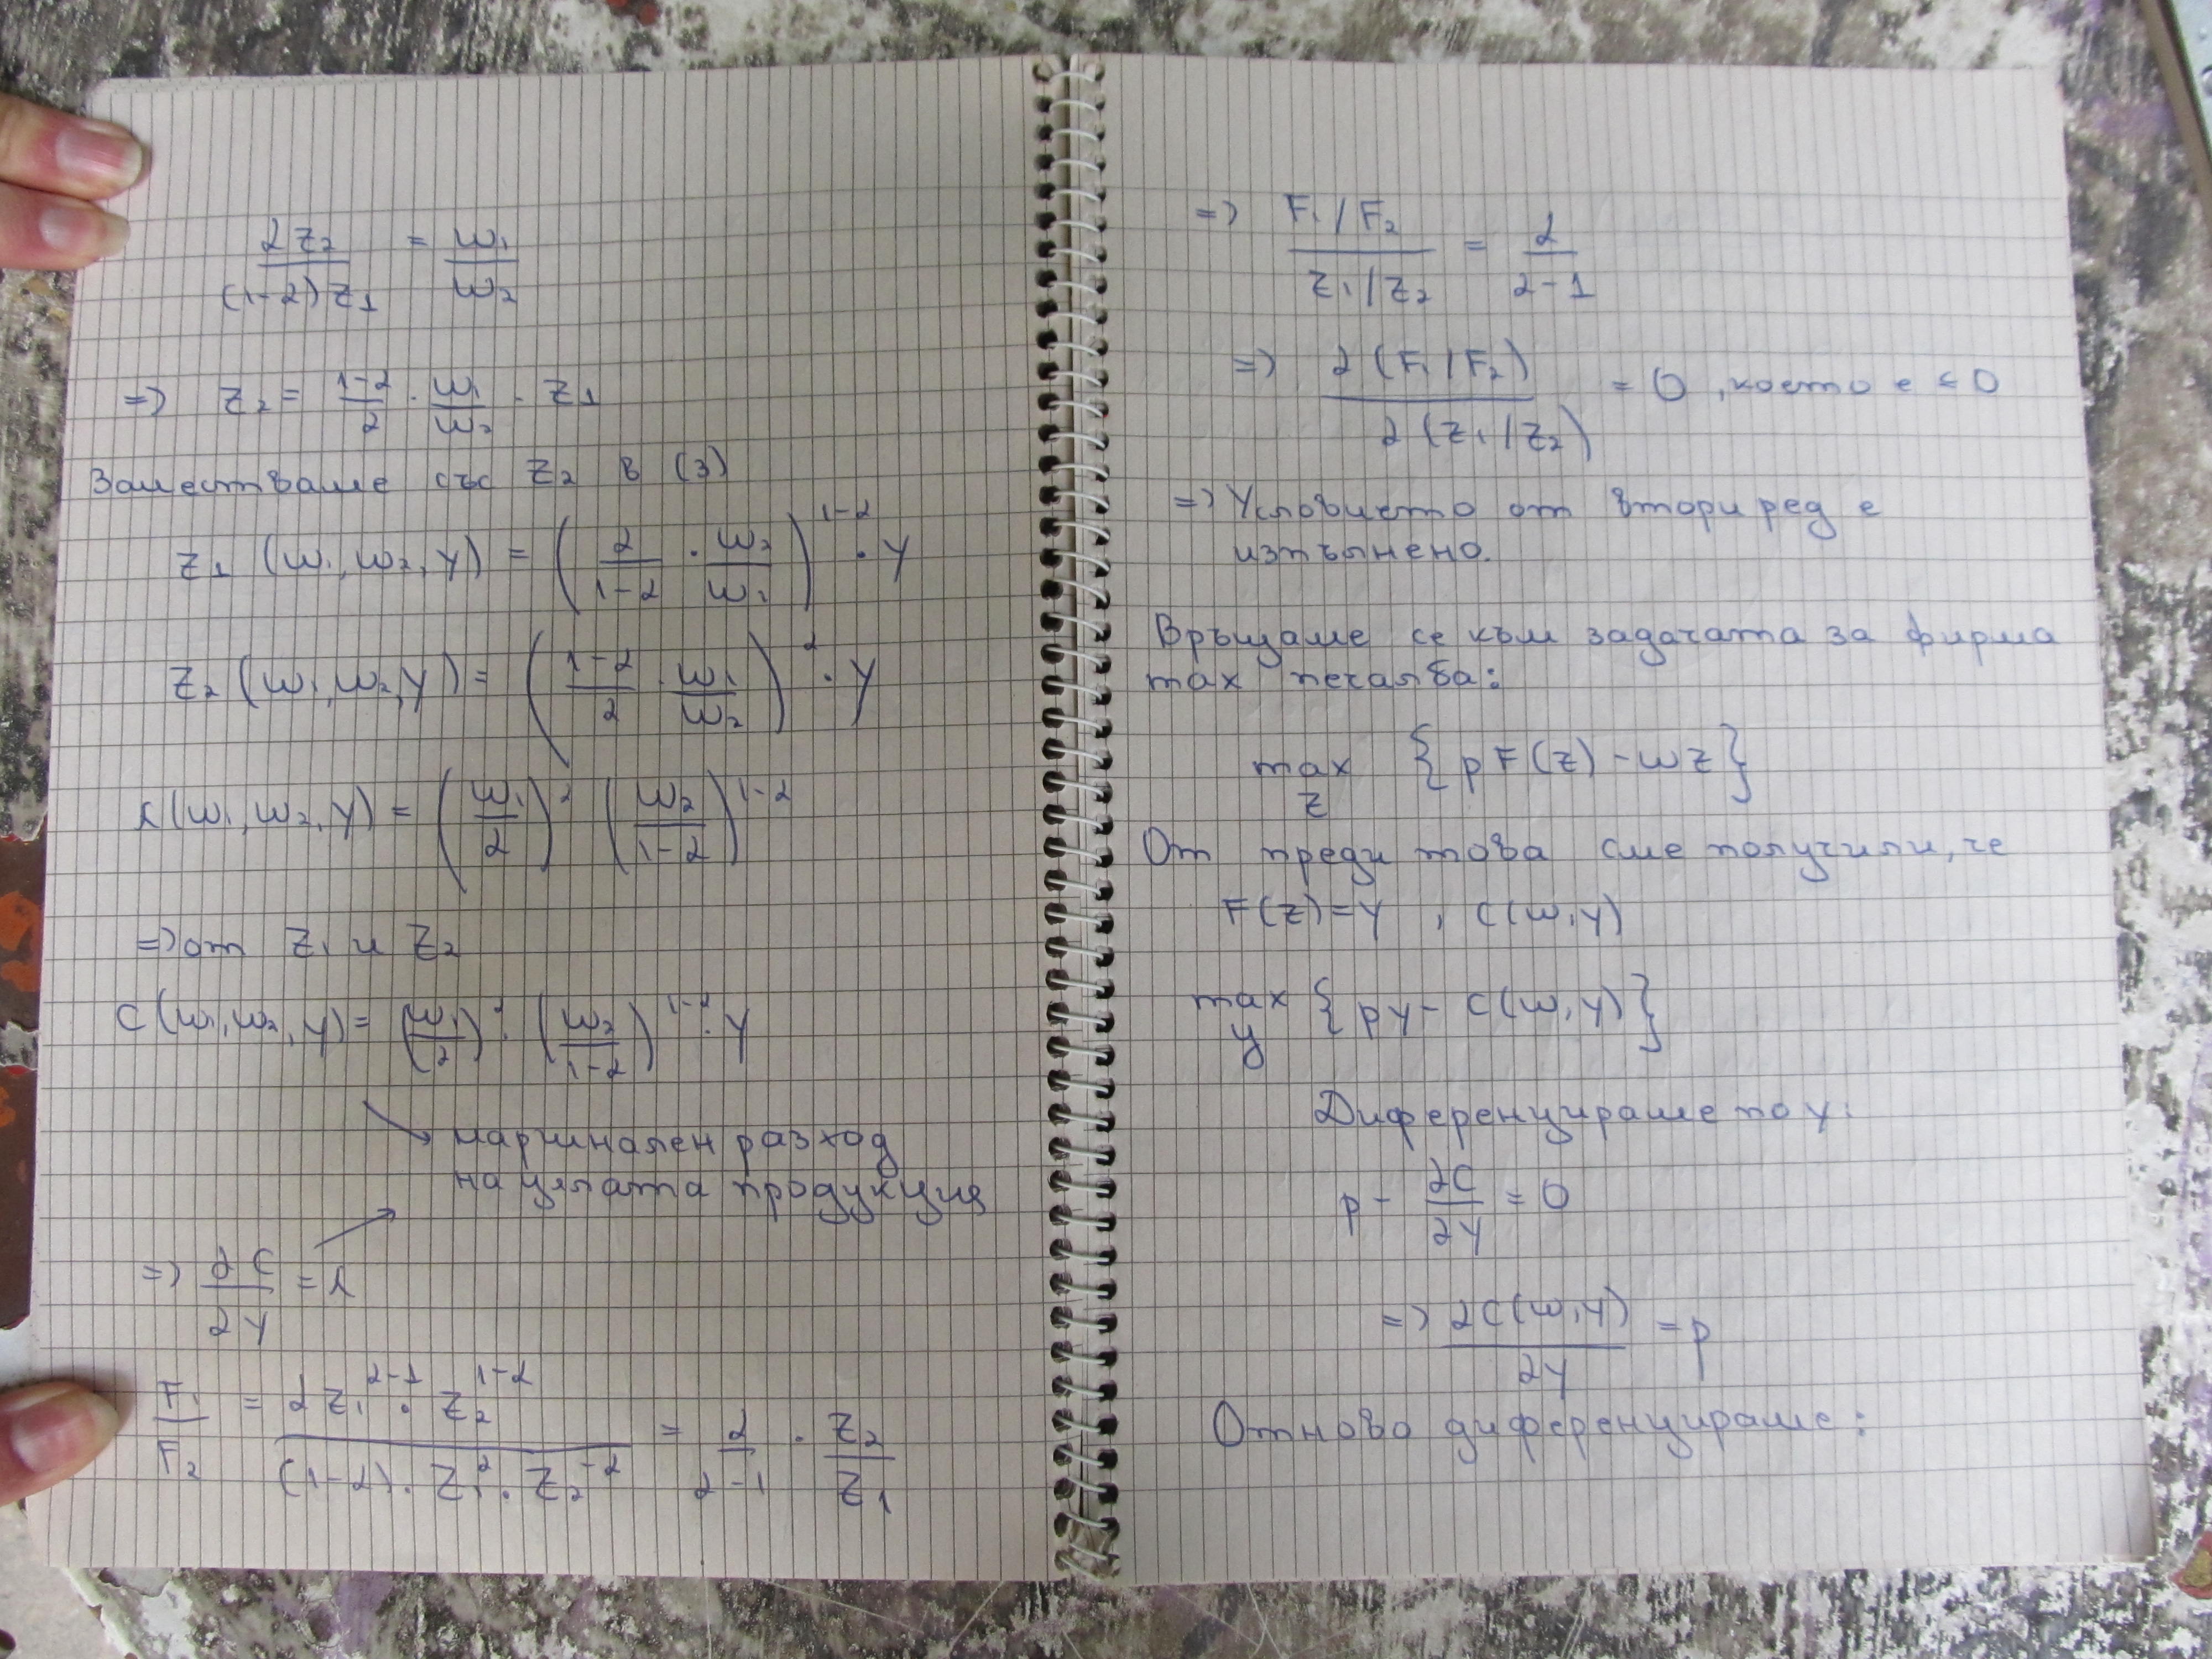 αz₂ / (1-α)z₁ = w₁ / w₂
=> z₂ = (1-α)/α · w₁/w₂ · z₁
Заместваме със z₂ в (3)
z₁ (w₁, w₂, y) = (α/(1-α) · w₂/w₁)^(1-α) · y
z₂ (w₁, w₂, y) = ((1-α)/α · w₁/w₂)^α · y
λ(w₁, w₂, y) = (w₁/α)^α (w₂/(1-α))^(1-α)
=> от z₁ и z₂
C(w₁, w₂, y) = (w₁/α)^α · (w₂/(1-α))^(1-α) · y
маргинален разход
на цялата продукция
=> ∂C/∂y = λ
F₁/F₂ = αz₁^(α-1) · z₂^(1-α) / (1-α) · z₁^α · z₂^(-α) = α/(α-1) · z₂/z₁
=> (F₁/F₂) / (z₁/z₂) = α/(α-1)
=> ∂(F₁/F₂) / ∂(z₁/z₂) = 0, което е ≤ 0
=> Условието от втори ред е
изпълнено.
Връщаме се към задачата за фирма
max печалба:
max z {pF(z) - wz}
От преди това сме получили, че
F(z) = y , C(w, y)
max y {py - C(w, y)}
Диференцираме по y:
p - ∂C/∂y = 0
=> ∂C(w, y)/∂y = p
Отново диференцираме: